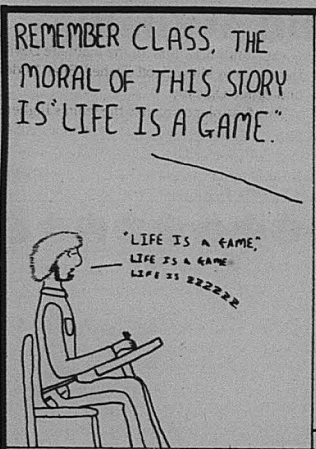 REMEMBER CLASS, THE
MORAL OF THIS STORY
IS "LIFE IS A GAME."
"LIFE IS A GAME,"
LIFE IS A GAME
LIFE IS ZZZZZZ